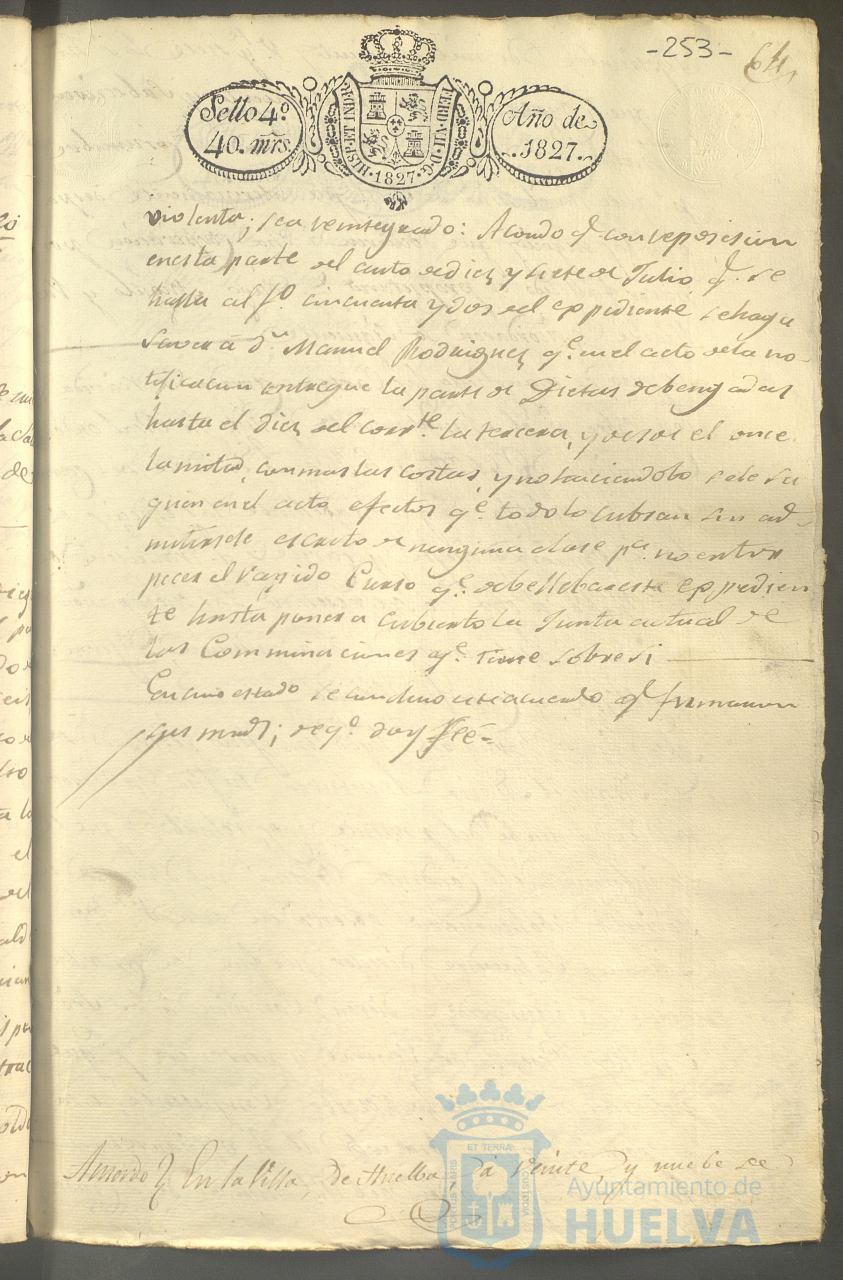 -253-
64,,
Sello 4º
40. mrs.
HISP. ET IND. R.
FERD. VII. D. G.
1827
Año de
1827.
violenta; sea reintegrado: Acordó qe con reposicion
en esta parte del auto de diez y siete de Julio qe se
halla al fo. cincuenta y dos del expediente, se haga
saver a Dn. Manuel Rodriguez, qe. en el acto de la no-
tificacion entregue la parte de Dietas debengadas
hasta el diez del corrte. la tercera, y desde el once
la mitad, con mas las costas, y no haciendolo se le sa
quen en el acto efectos qe. todo lo cubran sin ad-
mitirsele escrito de ninguna clase pa. no entor
pecer el rapido Curso qe. debe llebar este expedien
te hasta poner a cubierto la Junta actual de
las Comminaciones qe. tiene sobre si
En cuio estado se concluio este acuerdo qe firmaron
sus mrds; de qe. doy Feé=
Acuerdo } En la Villa, de Huelba, á veinte, y nuebe de
ET TERRÆ
Ayuntamiento de
HUELVA